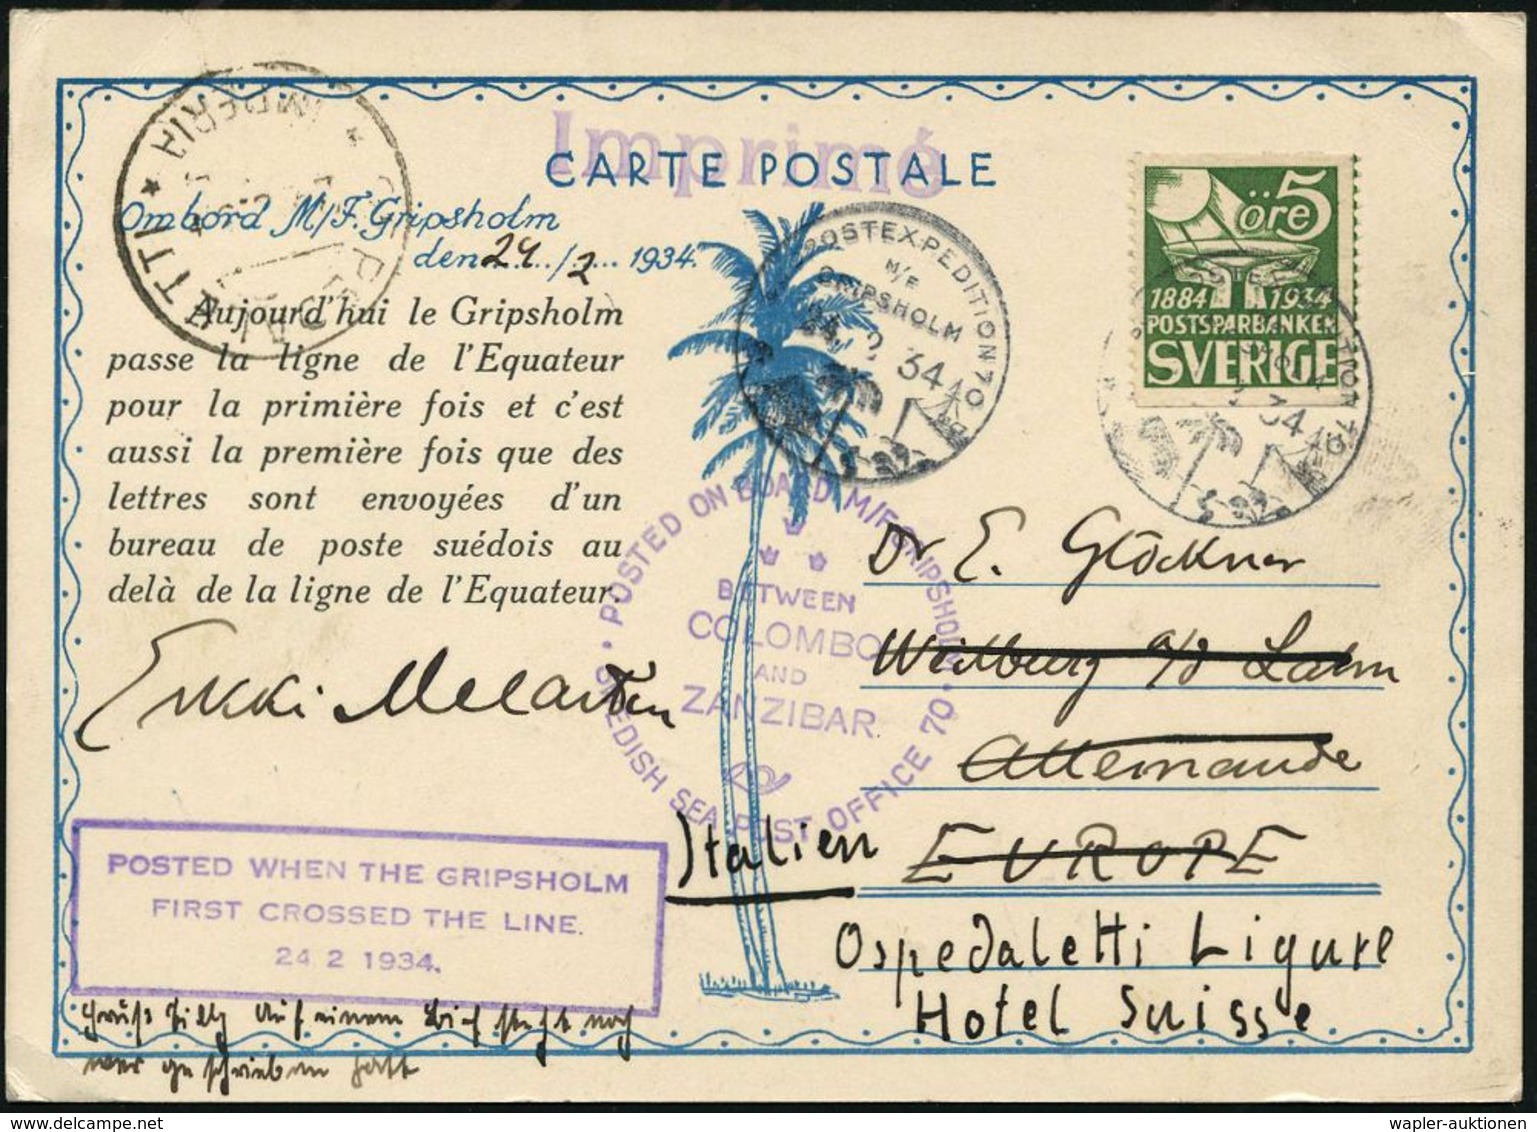 Imprimé
CARTE POSTALE
Ombord M/F. Gripsholm
den 24/2 1934.
Aujourd'hui le Gripsholm
passe la ligne de l'Equateur
pour la primière fois et c'est
aussi la première fois que des
lettres sont envoyées d'un
bureau de poste suédois au
delà de la ligne de l'Equateur.
Erkki Melartin
POSTED WHEN THE GRIPSHOLM
FIRST CROSSED THE LINE.
24 2 1934.
auf einem
IMPERIA
POSTEXPEDITION 70
M/F
GRIPSHOLM
24 2 34
öre 5
1884 1934
POSTSPARBANKEN
SVERIGE
POSTED ON BOARD M/F GRIPSHOLM
BETWEEN
COLOMBO
AND
ZANZIBAR.
SWEDISH SEA POST OFFICE 70
Dr E. Glöckner
Weilburg a/d Lahn
Allemande
EUROPE
Italien
Ospedaletti Ligure
Hotel Suisse
wapler-auktionen